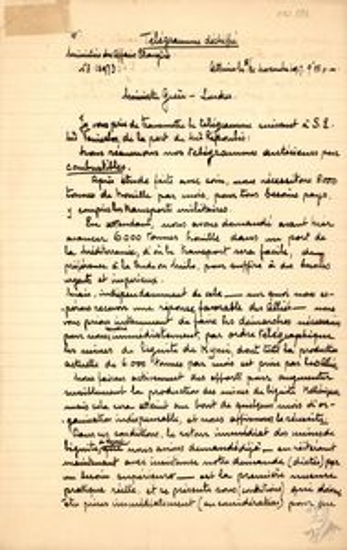 Télégramme déchiffré
Ministère des Affaires Etrangères
Athènes le novembre 1917
Ministre Grèce – Londres
Je vous prie de transmettre le télégramme suivant à S.E.
Mr Venizelos de la part de Mr Repoulis:
Nous résumons nos télégrammes antérieurs pour
combustibles.
Après étude faite avec soin, nous nécessitons 8000
tonnes de houille par mois, pour tous besoins pays,
y compris les transports militaires.
En attendant, nous avons demandé avant hier
avancer 6000 tonnes houille dans un port de
la Méditerranée, d'où le transport sera facile, de
préférence à à des besoins
urgents et impérieux.
Mais, indépendamment de cela – sur quoi nous es-
pérons recevoir une réponse favorable des Alliés – nous
vous prions instamment de faire les démarches nécessaires
pour immédiatement, par ordre télégraphique
les mines de lignite de dont toute la production
actuelle de 6000 tonnes par mois est prise par les Alliés
Nous faisons activement des efforts pour augmenter
sensiblement la production des mines de lignite
mais cela sera atteint au bout de quelques mois d'or-
ganisation indispensable, et nous affirmons la réussite.
Dans ces conditions, le retour immédiat des mines de
lignite, que nous avons demandé déjà – en réitérant
maintenant avec instance notre demande (dictée) par
un besoin supérieur – est la première mesure
pratique réelle, et se présente sans (conditions) qui doive
être prises immédiatement (en considération) pour que